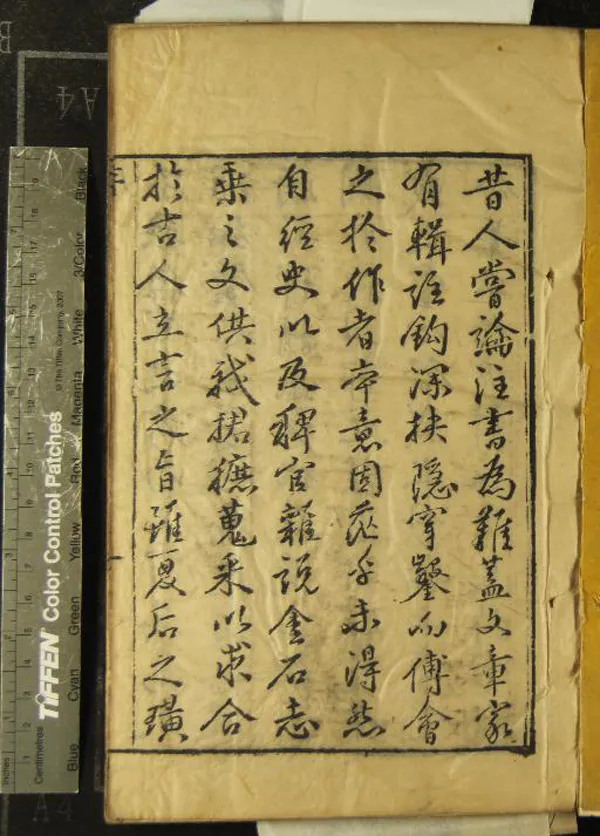 昔人嘗論注書為難蓋文章家
有輯註鉤深抉隱穿鑿而傅會
之於作者本意固茫乎未得然
自經史以及稗官雜說金石志
乘之文供我捃摭蒐采以求合
於古人立言之旨雖夏后之璜
一
TIFFEN Color Control Patches
© The Tiffen Company, 2007
Blue Cyan Green Yellow Red Magenta White 3/Color Black
Inches
Centimetres
A4
A4
B